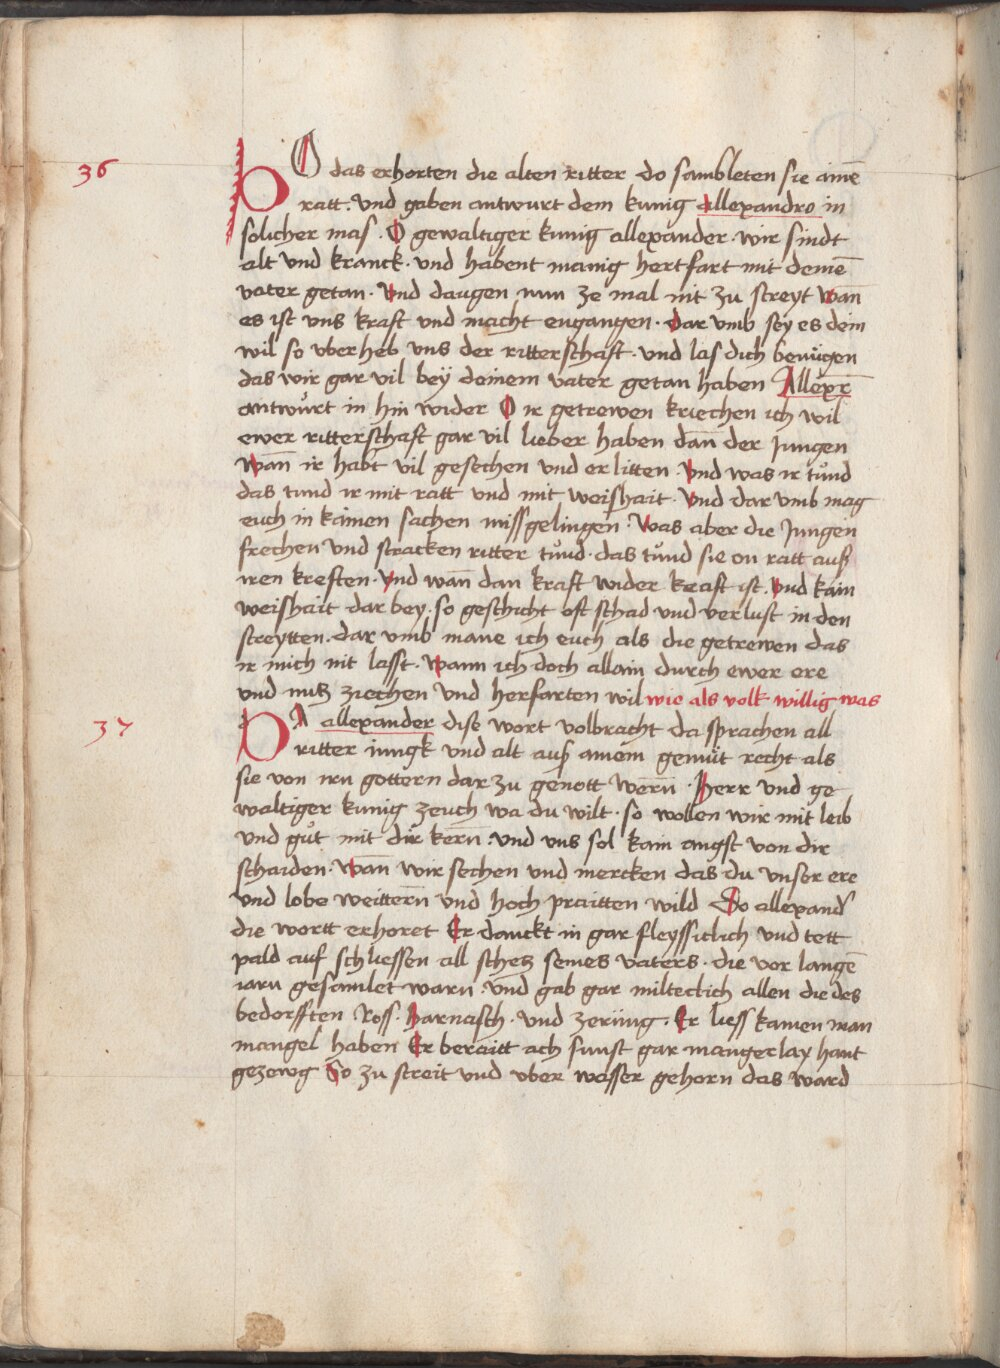 36
DO das erhorten die alten ritter do sambleten sie ainē
ratt. Vnd gaben antwurt dem kunig allexandro in
solicher mas. O gewaltiger kunig allexander. wir sindt
alt vnd kranck. vnd habent manig hertfart mit deinē
vater getan. Vnd daugen nun ze mal nit zu streyt wan̄
es ist vns kraft vnd macht engangen. dar vmb sey es dein
wil so vberheb vns der ritterschaft. vnd las dich benügen
das wir gar vil beÿ deinem vater getan haben Allexr̄
antwůrt in hin wider O ir getrewen kriechen ich wil
ewer ritterschaft gar vil lieber haben dan̄ der Jungen
Wan̄ ir habt vil gesechen vnd erlitten Vnd was ir tůnd
das tund ir mit ratt vnd mit weishait. Vnd dar vmb mag
euch in kainen sachen missgelingen. Was aber die Jungen
frechen vnd starcken ritter tůnd. das tůnd sie on ratt auß
iren kreften. Vnd wan̄ dan kraft wider kraft ist. Vnd kain
weishait dar bey. so geschicht oft schad vnd verlust in den
streytten. dar vmb mane ich euch als die getrewen das
ir mich nit lasst. Wann ich doch allain durch ewer ere
vnd nutz ziechen vnd herfarten wil wie als volk willig was
37
DA allexander dise wort volbracht da sprachen all
ritter iungk vnd alt auß ainem gemüt recht als
sie von irn gottern dar zu genott wern̄. Herr vnd ge
waltiger kunig zeuch wa du wilt. so wollen wir mit leib
vnd gůt mit dir kern̄. vnd vns sol kain angst von dir
schaiden. Wan̄ wir sechen vnd mercken das du vnser ere
vnd lobe weittern̄ vnd hoch praitten wild Do allexand̓
die wortt erhoret Er danckt in gar fleyssiclich vnd tett
pald auf schliessen all schetz seines vaters. die vor langē
iarn gesamlet warn. vnd gab gar milteclich allen die des
bedorfften Ross. Harnasch. vnd zerüng. Er liess kainen man
mangel haben Er beraitt ach sunst gar mangerlay hant
gezewg So zu streit vnd vber wasser gehorn das ward